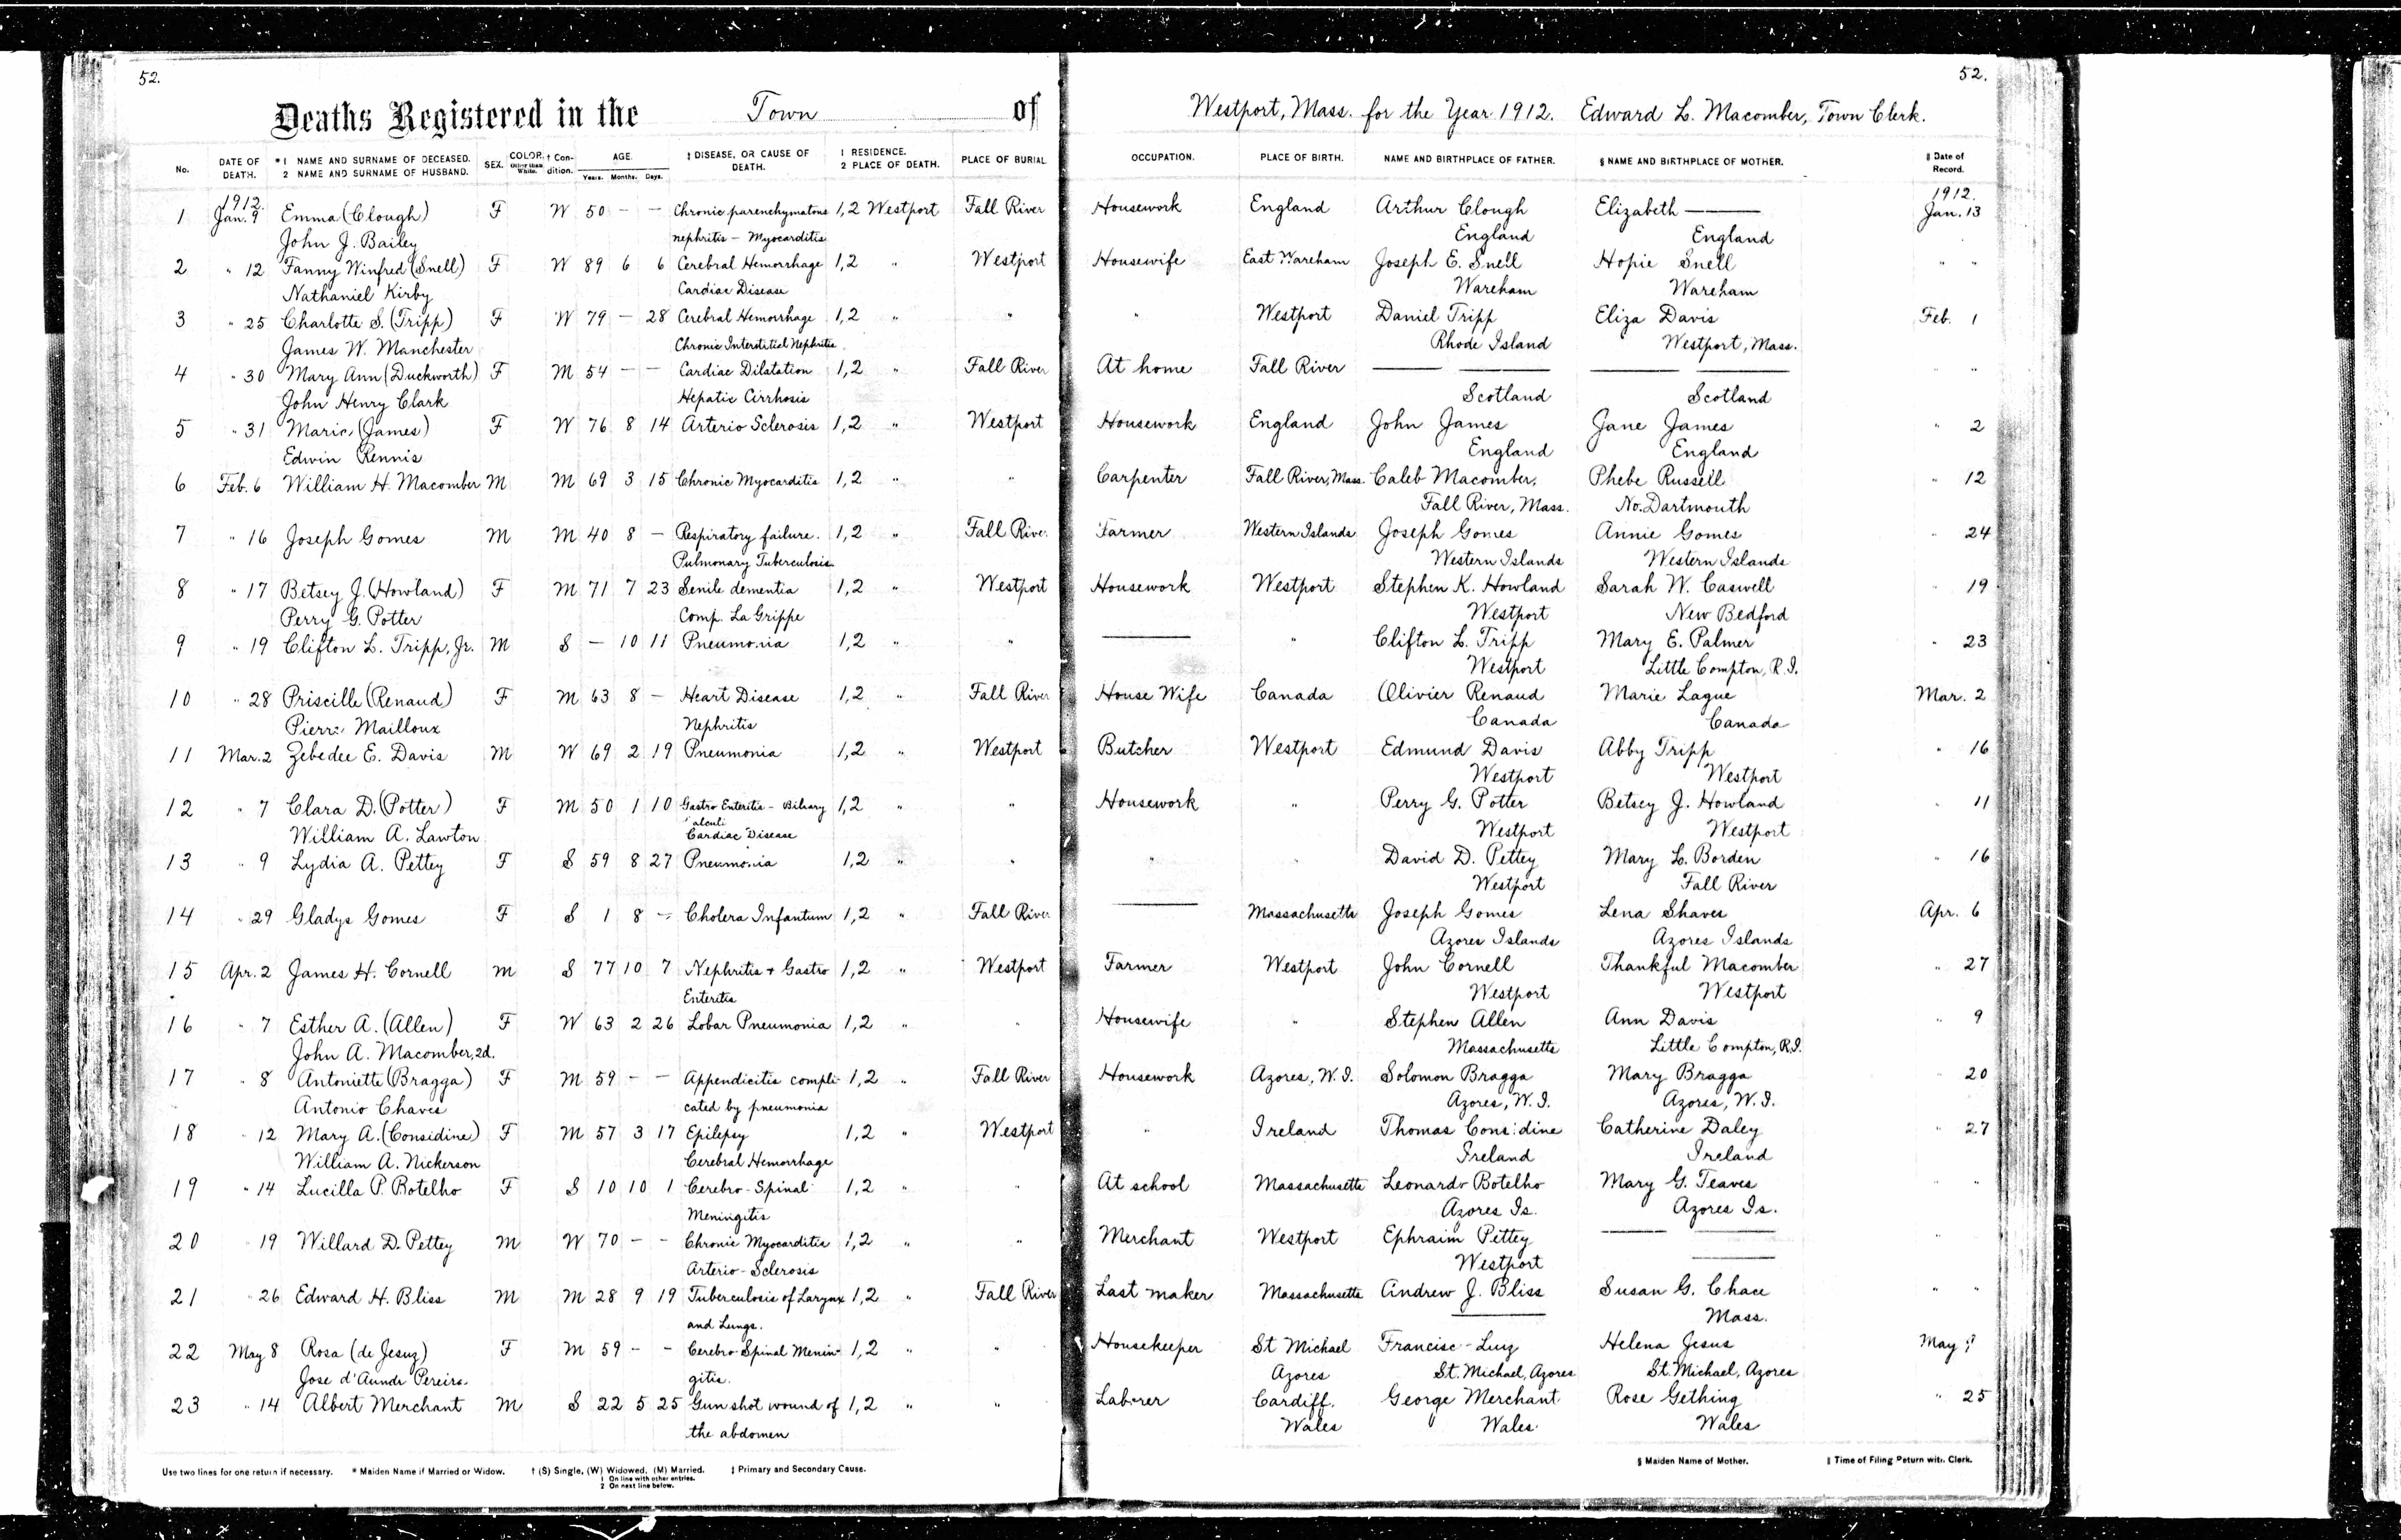 52.
52.
Deaths Registered in the Town of Westport, Mass. for the Year 1912. Edward L. Macomber, Town Clerk.
No. DATE OF DEATH. *1 NAME AND SURNAME OF DECEASED. 2 NAME AND SURNAME OF HUSBAND. SEX. COLOR, Other than White. † Condition. AGE. Years. Months. Days. ‡ DISEASE, OR CAUSE OF DEATH. 1 RESIDENCE. 2 PLACE OF DEATH. PLACE OF BURIAL OCCUPATION. PLACE OF BIRTH. NAME AND BIRTHPLACE OF FATHER. § NAME AND BIRTHPLACE OF MOTHER. ‖ Date of Record.
1912. 1912.
1 Jan. 9 Emma (Clough) F W 50 - - Chronic parenchymatous 1,2 Westport Fall River Housework England Arthur Clough Elizabeth —— Jan. 13
John J. Bailey nephritis - Myocarditis England England
2 " 12 Fanny Winfred (Snell) F W 89 6 6 Cerebral Hemorrhage 1,2 " Westport Housewife East Wareham Joseph E. Snell Hopie Snell " "
Nathaniel Kirby Cardiac Disease Wareham Wareham
3 " 25 Charlotte S. (Tripp) F W 79 - 28 Cerebral Hemorrhage 1,2 " " " Westport Daniel Tripp Eliza Davis Feb. 1
James W. Manchester Chronic Interstitial Nephritis Rhode Island Westport, Mass.
4 " 30 Mary Ann (Duckworth) F M 54 - - Cardiac Dilatation 1,2 " Fall River At home Fall River —— —— —— —— " "
John Henry Clark Hepatic Cirrhosis Scotland Scotland
5 " 31 Maria (James) F W 76 8 14 Arterio Sclerosis 1,2 " Westport Housework England John James Jane James " 2
Edwin Rennis England England
6 Feb. 6 William H. Macomber M M 69 3 15 Chronic Myocarditis 1,2 " " Carpenter Fall River, Mass. Caleb Macomber, Phebe Russell " 12
Fall River, Mass. No. Dartmouth
7 " 16 Joseph Gomes M M 40 8 - Respiratory failure. 1,2 " Fall River Farmer Western Islands Joseph Gomes Annie Gomes " 24
Pulmonary Tuberculosis Western Islands Western Islands
8 " 17 Betsey J. (Howland) F M 71 7 23 Senile dementia 1,2 " Westport Housework Westport Stephen K. Howland Sarah W. Caswell " 19
Perry G. Potter Comp. La Grippe Westport New Bedford
9 " 19 Clifton L. Tripp, Jr. M S - 10 11 Pneumonia 1,2 " " —— " Clifton L. Tripp Mary E. Palmer " 23
Westport Little Compton, R.I.
10 " 28 Priscille (Renaud) F M 63 8 - Heart Disease 1,2 " Fall River House Wife Canada Olivier Renaud Marie Lague Mar. 2
Pierre Mailloux Nephritis Canada Canada
11 Mar. 2 Zebedee E. Davis M W 69 2 19 Pneumonia 1,2 " Westport Butcher Westport Edmund Davis Abby Tripp " 16
Westport Westport
12 " 7 Clara D. (Potter) F M 50 1 10 Gastro Enteritis - Biliary 1,2 " " Housework " Perry G. Potter Betsey J. Howland " 11
William A. Lawton Calculi Cardiac Disease Westport Westport
13 " 9 Lydia A. Pettey F S 59 8 27 Pneumonia 1,2 " " " " David D. Pettey Mary L. Borden " 16
Westport Fall River
14 " 29 Gladys Gomes F S 1 8 - Cholera Infantum 1,2 " Fall River —— Massachusetts Joseph Gomes Lena Shaves Apr. 6
Azores Islands Azores Islands
15 Apr. 2 James H. Cornell M S 77 10 7 Nephritis + Gastro 1,2 " Westport Farmer Westport John Cornell Thankful Macomber " 27
Enteritis Westport Westport
16 " 7 Esther A. (Allen) F W 63 2 26 Lobar Pneumonia 1,2 " " Housewife " Stephen Allen Ann Davis " 9
John A. Macomber, 2d. Massachusetts Little Compton, R.I.
17 " 8 Antoniette (Bragga) F M 59 - - Appendicitis compli- 1,2 " Fall River Housework Azores, W.I. Solomon Bragga Mary Bragga " 20
Antonio Chaves cated by pneumonia Azores, W.I. Azores, W.I.
18 " 12 Mary A. (Considine) F M 57 3 17 Epilepsy 1,2 " Westport " Ireland Thomas Considine Catherine Daley " 27
William A. Nickerson Cerebral Hemorrhage Ireland Ireland
19 " 14 Lucilla P. Botelho F S 10 10 1 Cerebro-Spinal 1,2 " " At school Massachusetts Leonardo Botelho Mary G. Teaves " "
Meningitis Azores Is. Azores Is.
20 " 19 Willard D. Pettey M W 70 - - Chronic Myocarditis 1,2 " " Merchant Westport Ephraim Pettey —— —— "
Arterio-Sclerosis Westport ——
21 " 26 Edward H. Bliss M M 28 9 19 Tuberculosis of Larynx 1,2 " Fall River Last maker Massachusetts Andrew J. Bliss Susan G. Chace " "
and Lungs. —— Mass.
22 May 8 Rosa (de Jesuz) F M 59 - - Cerebro-Spinal Menin- 1,2 " " Housekeeper St Michael Francisc- Luiz Helena Jesus May
Jose Pereira gitis. Azores St. Michael, Azores St. Michael, Azores
23 " 14 Albert Merchant M S 22 5 25 Gun shot wound of 1,2 " " Laborer Cardiff. George Merchant Rose Gething " 25
the abdomen Wales Wales Wales
Use two lines for one return if necessary. * Maiden Name if Married or Widow. † (S) Single, (W) Widowed, (M) Married. ‡ Primary and Secondary Cause. § Maiden Name of Mother. ‖ Time of Filing Return with Clerk.
1 On line with other entries.
2 On next line below.